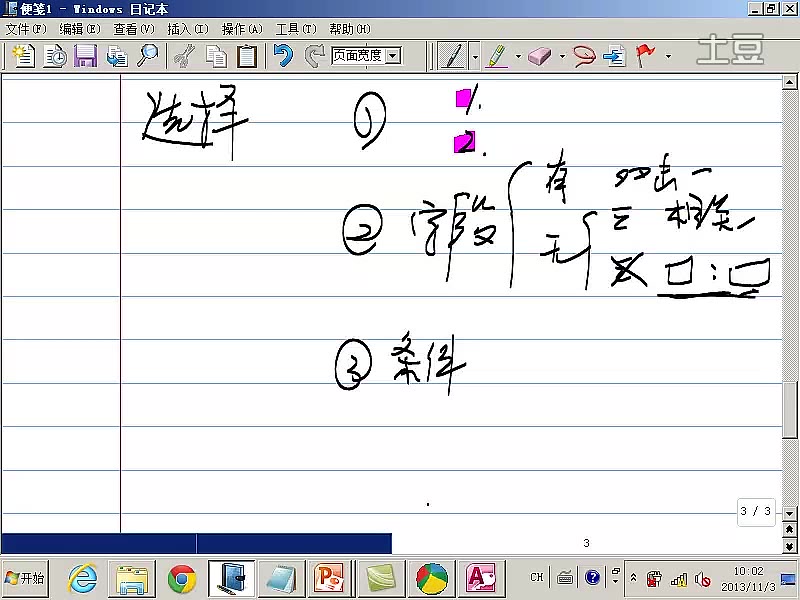 便笺1 - Windows 日记本
文件(F) 编辑(E) 查看(V) 插入(I) 操作(A) 工具(T) 帮助(H)
页面宽度
土豆
选择 ① 1.
2.
② 字段 有 双击
无 三 相关
□:□
③ 条件
3 / 3
3
开始 CH 10:02
2013/11/3